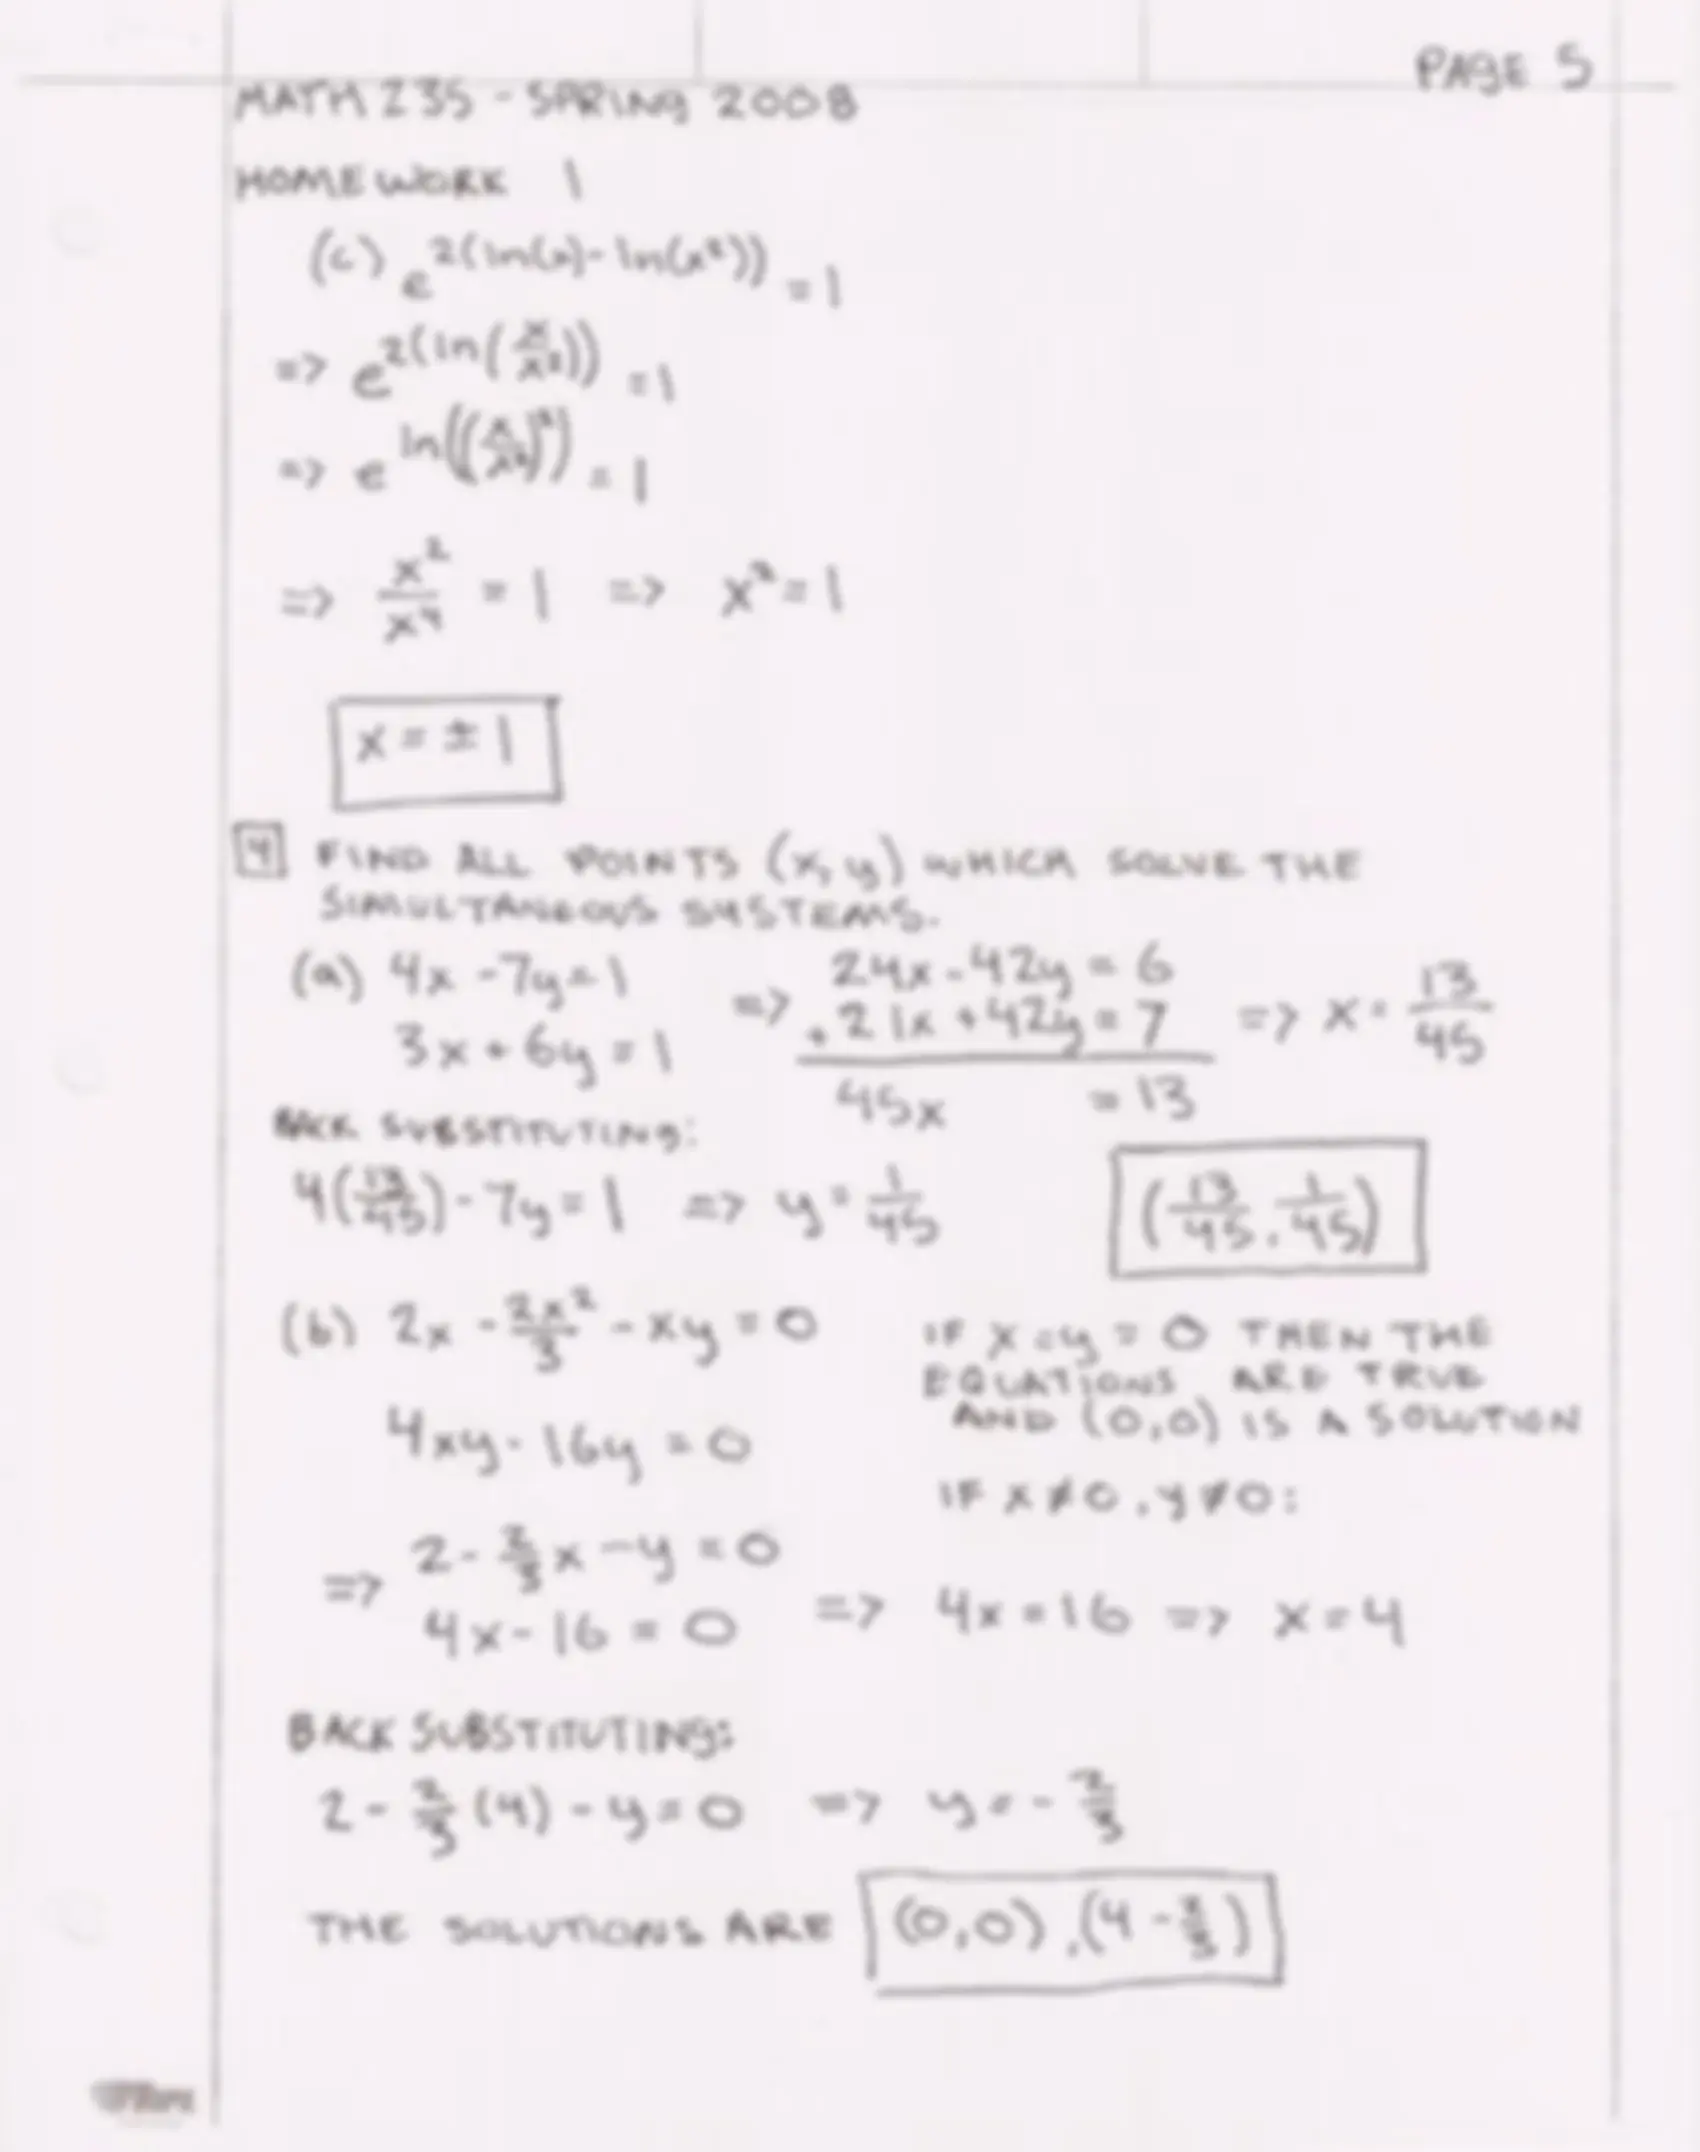 PAGE 5
MATH 235 - SPRING 2008
HOMEWORK 1
(c) e^{2(ln(x)-ln(x²))} = 1
=> e^{2(ln(x/x²))} = 1
=> e^{ln((x/x²)²)} = 1
=> x²/x⁴ = 1 => x² = 1
x = ±1
4 FIND ALL POINTS (x, y) WHICH SOLVE THE
SIMULTANEOUS SYSTEMS.
(a) 4x - 7y = 1 => 24x - 42y = 6 => x = 13/45
3x + 6y = 1 + 21x + 42y = 7
45x = 13
BACK SUBSTITUTING:
4(13/45) - 7y = 1 => y = 1/45 (13/45, 1/45)
(b) 2x - 2x²/3 - xy = 0 IF x = y = 0 THEN THE
EQUATIONS ARE TRUE
4xy - 16y = 0 AND (0,0) IS A SOLUTION
IF x ≠ 0, y ≠ 0:
=> 2 - 2/3 x - y = 0
4x - 16 = 0 => 4x = 16 => x = 4
BACK SUBSTITUTING:
2 - 2/3 (4) - y = 0 => y = - 2/3
THE SOLUTIONS ARE (0,0), (4 - 2/3)